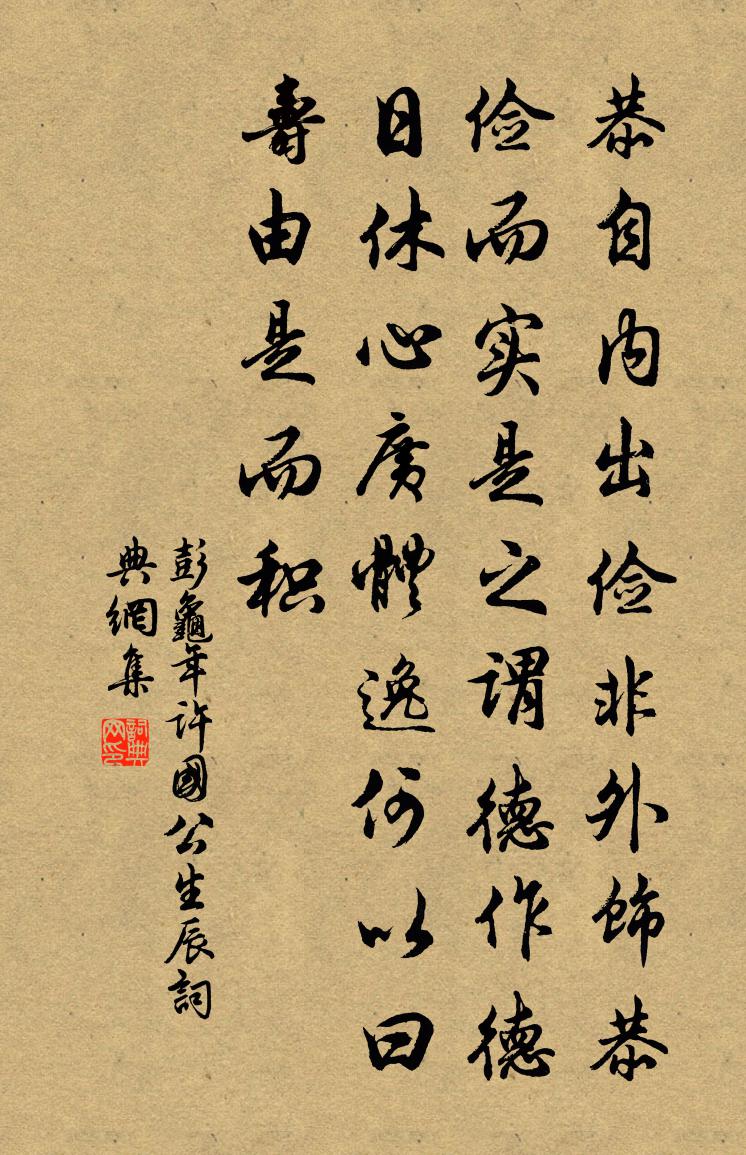 恭自内出俭非外飾恭
俭而实是之謂德作德
日休心廣體逸何以曰
壽由是而积
彭龜年许國公生辰詞
典網集
詞典
网印